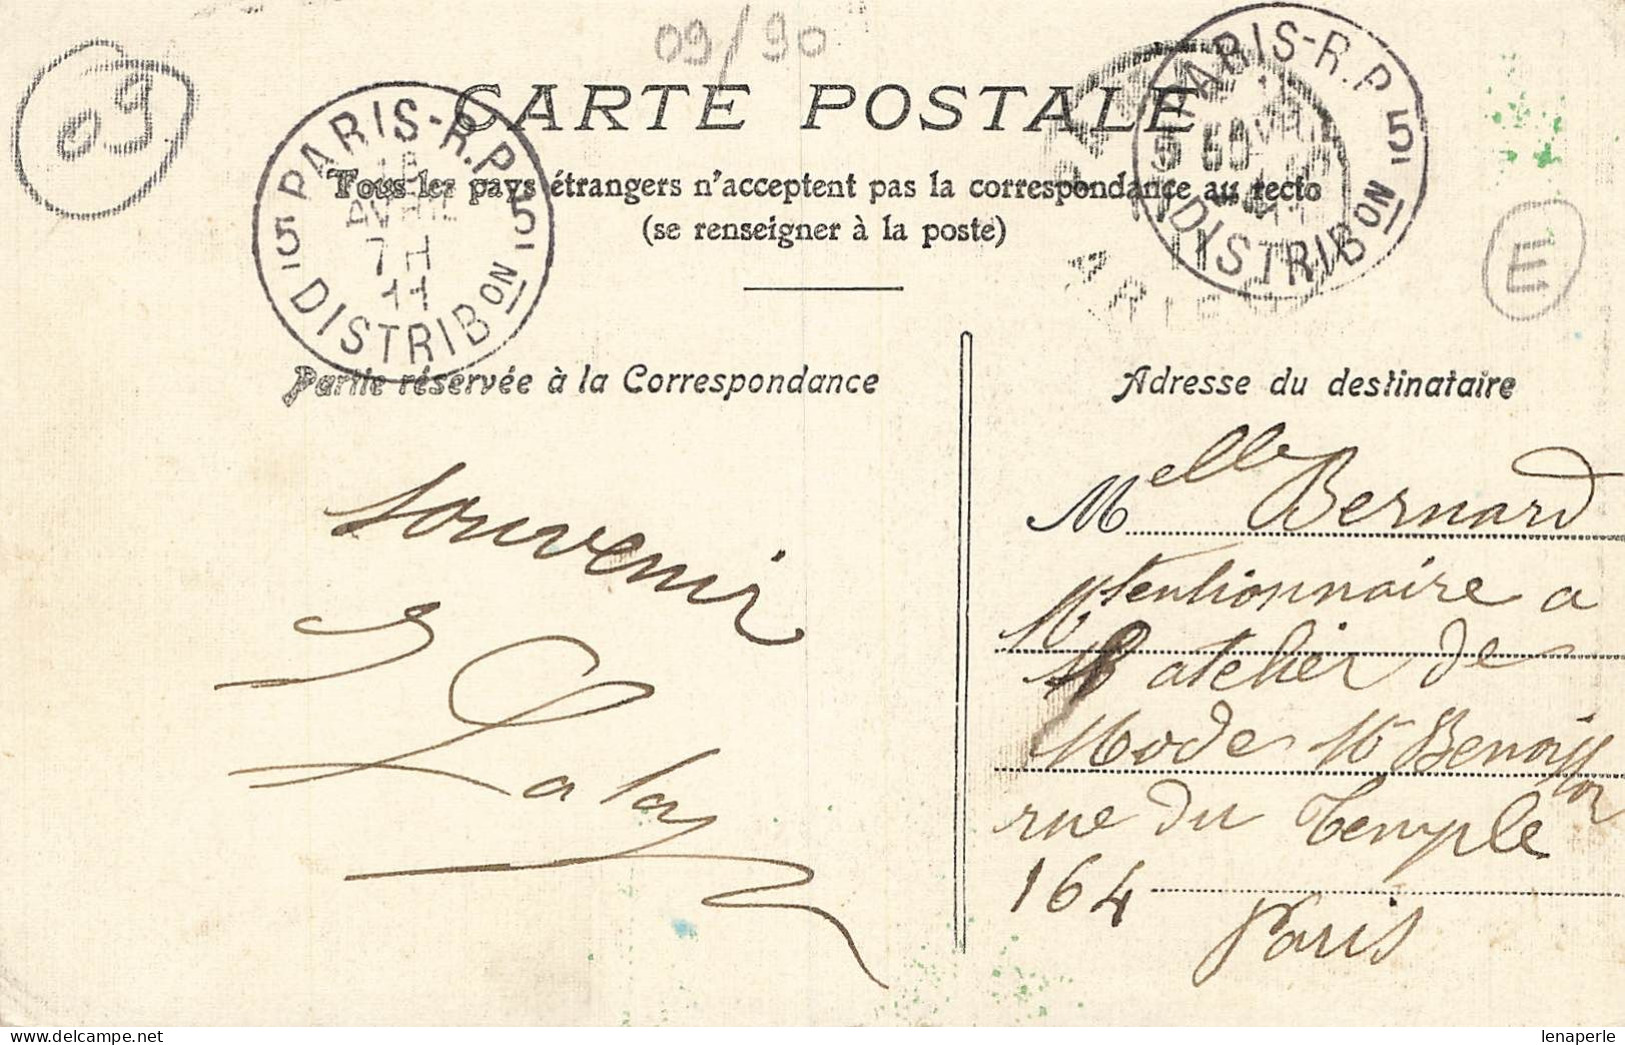 09/90
09
CARTE POSTALE
Tous les pays étrangers n'acceptent pas la correspondance au recto
(se renseigner à la poste)
PARIS-R.P.
5 5
AVRIL
7 H
11
DISTRIBON
PARIS-R.P
5 5
DISTRIBON
E
Partie réservée à la Correspondance
Adresse du destinataire
souvenir
Melle Bernard
a
atelier de
Mode Benoiston
rue du Temple
164
Paris
lenaperle